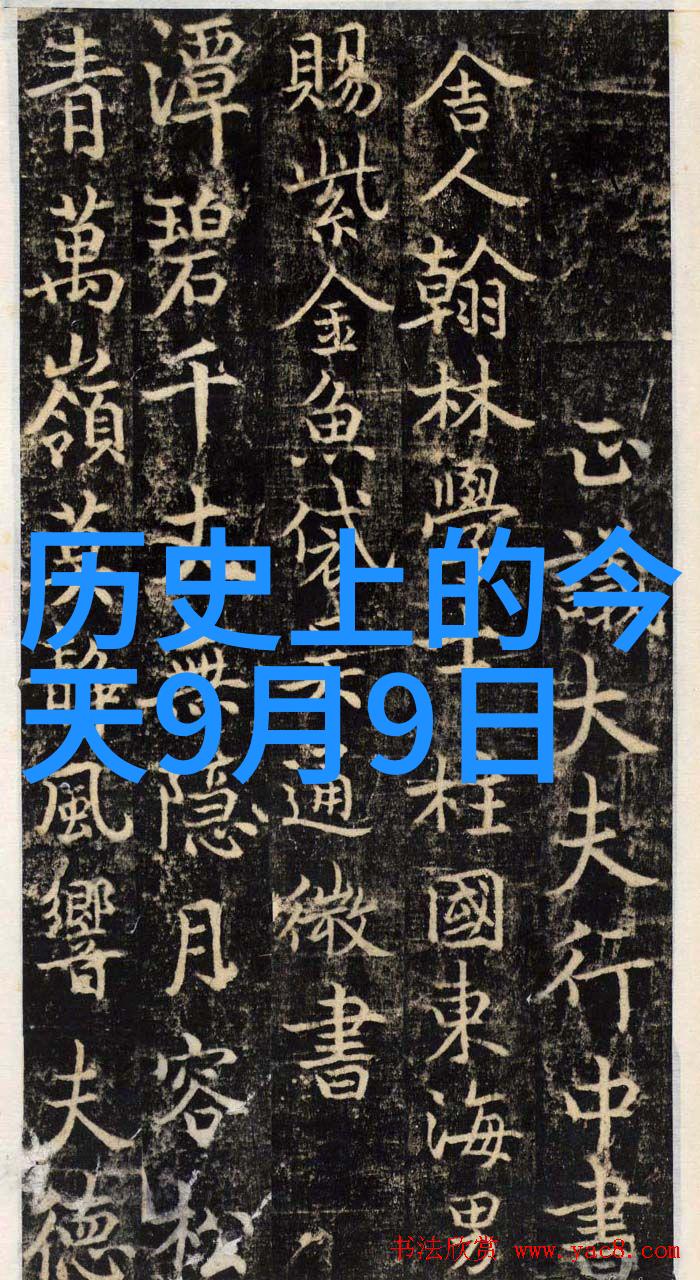 正議大夫行中書
舍人翰林學士柱國東海男
賜紫金魚袋徐通微書
潭碧千丈無隱月容松
青萬嶺葉靜風響夫德
历史上的今
天9月9日
书法欣赏 www.yac8.com